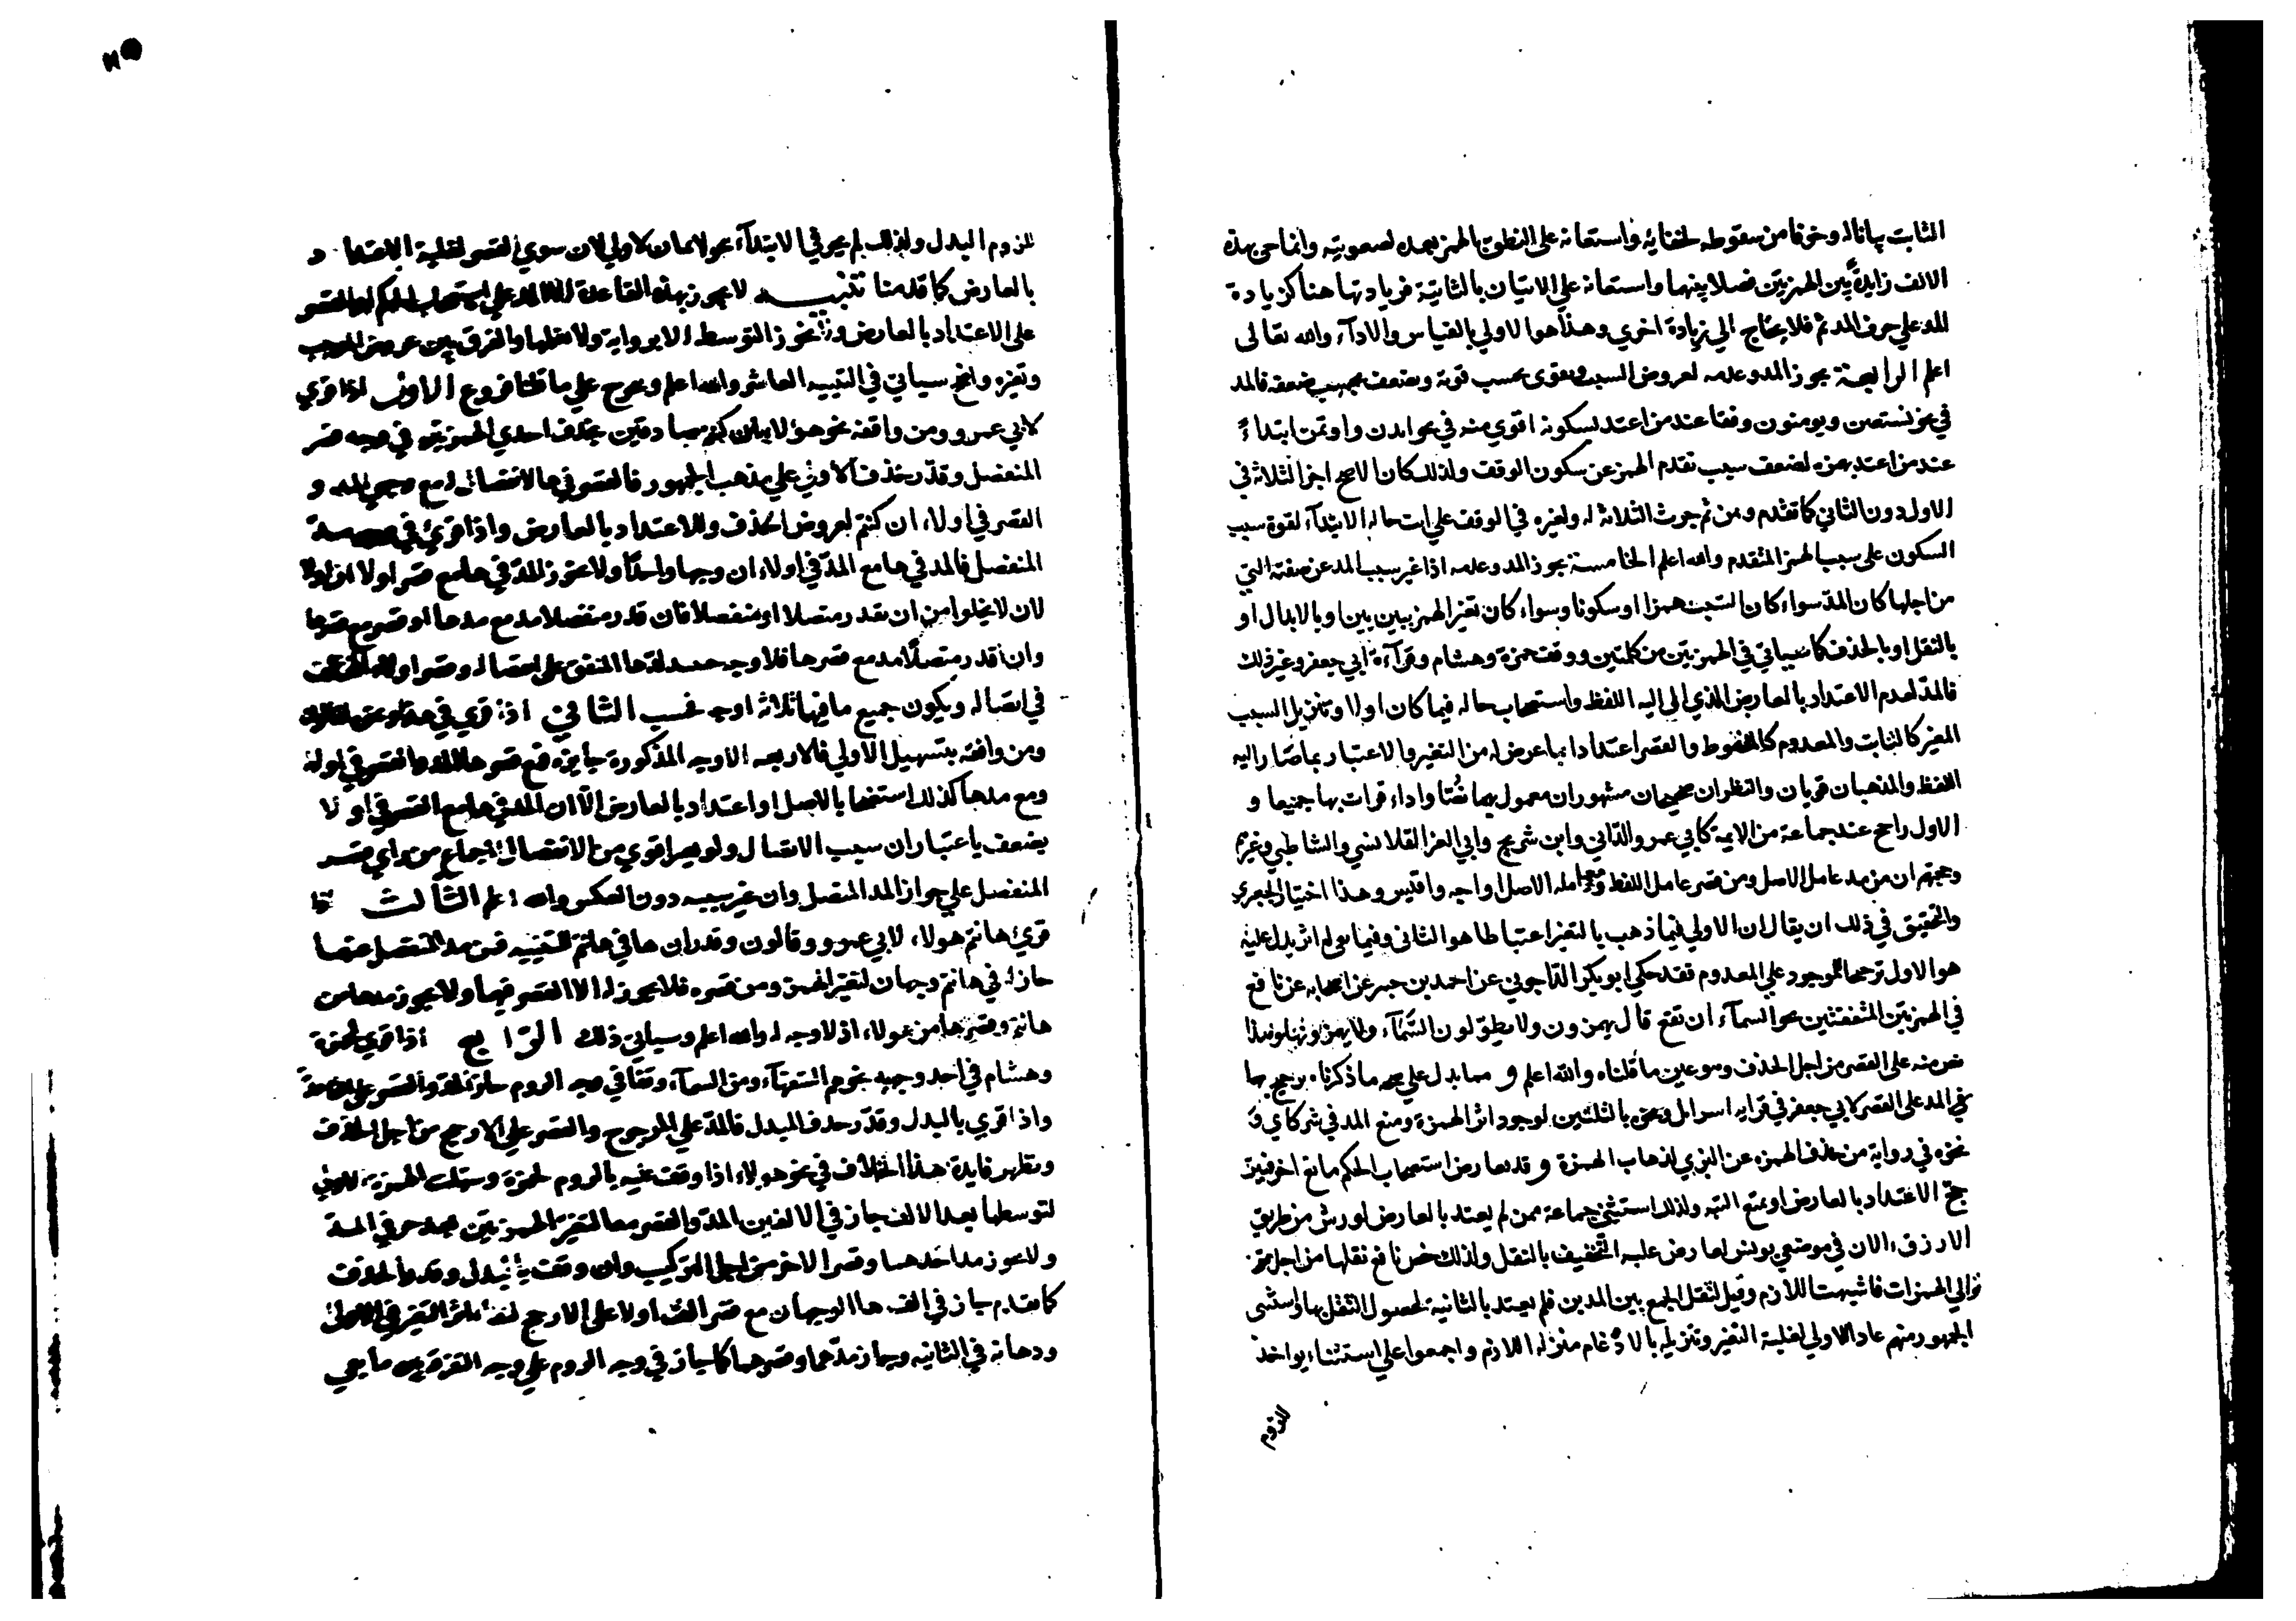 الثابت بيانا له وخوفا من سقوطه لخفايه واستعانة على النطق بالهمز بعده لصعوبته وانما جئ بهذه
الالف زايدة بين الهمزتين فصلا بينهما واستعانة علي الاتيان بالثانية فزيادتها هنا كزيادة
المد علي حرف المد ثم فلا يحتاج الي زيادة اخري وهذا هوا لاولي بالقياس والادآء والله تعالى
اعلم الرابعة يجوز المد وعدمه لعروض السبب ويقوى بحسب قوته ويضعف بحسب ضعفه فالمد
في نحو نستعين ويومنون وقفا عند من اعتد بسكونه اقوي منه في نحو ايذن واوتمن ابتداءً
عند من اعتد بهمزه لضعف سبب تقدم الهمز عن سكون الوقف ولذلك كان الاصح اجرا الثلاثة في
الاول دون الثاني كما تقدم ومن ثم جرت الثلاثة له ولغيره في الوقف علي ايت حالة الابتدآء لقوة سبب
السكون على سبب الهمز المتقدم والله اعلم الخامسة يجوز المد وعدمه اذا غير سبب المد عن صفته التي
من اجلها كان المد سواء كان السبب همزا او سكونا وسواء كان تغير الهمز ببين بين او بالابدال او
بالنقل او بالحذف كما سياتي في الهمزتين من كلمتين ووقف حمزة وهشام وقرآءة ابي جعفر وغير ذلك
فالمد لعدم الاعتداد بالعارض الذي الى اليه اللفظ واستصحاب حاله فيما كان اولا وتنزيل السبب
المغير كالثابت والمعدوم كالملفوظ والقصر اعتدادا بما عرض له من التغير والاعتبار بما صار اليه
اللفظ والمذهبان قويان والنظران صحيحان مشهوران معمول بهما نصا واداء قرات بها جميعا و
الاول راجح عند جماعة من الايمة كابي عمرو الداني وابن شريح وابي العز القلانسي والشاطبي وغيرهم
وحجتهم ان من مد عامل الاصل ومن قصر عامل اللفظ ومعاملة الاصل اوجه واقيس وهذا اختيار الجعبري
والتحقيق في ذلك ان يقال ان الاولي فيما ذهب بالتغير اعتباطا هو الثاني وفيما بقي له اثر يدل عليه
هو الاول ترجيحا للموجود علي المعدوم فقد حكي ابو بكر الداجوني عن احمد بن جبير عن اصحابه عن نافع
في الهمزتين المتفقتين نحو السمآء ان تقع قال يهمزون ولا يطولون السمآء ولا يهمزونها وهذا
نص منه على القصر من اجل الحذف وهو عين ما قلناه والله اعلم ومما يدل علي صحة ما ذكرناه ترجيح
المد على القصر لابي جعفر في قراية اسرايل ونحوه بالتليين لوجود اثر الهمزة ومنع المد في شركاي و
نحوه في رواية من حذف الهمزه عن البزي لذهاب الهمزة وقد يعارض استصحاب الحكم مانع اخر فيترجح
الاعتداد بالعارض او يمتنع البتة ولذلك استثني جماعة ممن لم يعتد بالعارض لورش من طريق
الازرق الان في موضعي يونس لعارض غلبة التخفيف بالنقل ولذلك خص نافع نقلها من اجل
توالي الهمزات فاشبهت اللازم وقيل لثقل الجمع بين المدين فلم يعتد بالثانية لحصول الثقل بها واستثنى
الجمهور منهم عادا الاولي لغلبة التغير وتنزيله بالادغام منزلة اللازم واجمعوا علي استثناء يواخذ
للزوم
للزوم البدل ولذلك لم يجز في الابتدآء بنحو لايمان لاولي لان سوي القصر لغلبة الاعتداد
بالعارض كما قدمنا تنبيه لا يجوز بهذه القاعدة الا المد علي استصحاب الحكم او القصر
على الاعتداد بالعارض ولا يجوز التوسط الا برواية ولا نعلمها والفرق بين عروض الموجب
وتغيره واضح سياتي في التنبيه العاشر والله اعلم ويخرج علي ما قلنا فروع الاول اذا قري
لابي عمرو ومن وافقه نحو هؤلا ان كنتم صادقين بحذف احدي الهمزتين في وجه قصر
المنفصل وقدر حذف الاولي علي مذهب الجمهور فالقصر في ها لانفصاله مع وجهي المد و
القصر في اولاء ان كنتم لعروض الحذف وللاعتداد بالعارض واذا قرئ في وجه مد
المنفصل فالمد في ها مع المد في اولاء ان وجها واحدا ولا يجوز المد في ها مع قصر اولا
لان لا يخلوا من ان يقدر متصلا او منفصلا فان قدر منفصلا مد مع مدها او قصر مع قصرها
وان قدر متصلا مد مع قصرها فلا وجه حينئذ لمدها المتفق على انفصاله وقصر اولاء المختلف
في اتصاله ويكون جميع ما فيها ثلاثة اوجه فحسب الثاني اذا قري في هؤلاء ان لقالون
ومن وافقه بتسهيل الاولي فالاربعه الاوجه المذكورة جايزة فمع قصر ها المد والقصر في اولاء
ومع مدها كذلك استصحابا للاصل او اعتدادا بالعارض الا ان المد في ها مع القصر في اولا
يضعف باعتبار ان سبب الاتصال ولو تغير اقوي من الانفصال لاجماع من راي قصر
المنفصل علي جواز المد المتصل وان غير سببه دون العكس والله اعلم الثالث اذا
قرئ هانتم هولاء لابي عمرو وقالون وقدر ان ها في هانتم للتنبيه فمن مد المنفصل عنهما
جاز له في هانتم وجهان لتغير الهمز ومن قصره فلا يجوز له الا القصر فيهما ولا يجوز مد ها من
هانتم وقصر ها من هولاء اذ لا وجه له والله اعلم وسياتي ذلك الرابع اذا قري لحمزة
وهشام في احد وجهيه نحو هم السفهآء ومن السمآء وقفا في وجه الروم جاز المد والقصر علي القاعدة
واذا قري بالبدل وقدر حذف المبدل فالمد علي المرجوح والقصر علي الارجح من اجل الحذف
وتظهر فايدة هذا الخلاف في نحو هولاء اذا وقف عليه بالروم لحمزة وسهلت الهمزة الاولي
لتوسطها بعد الالف جاز في الالفين المد والقصر معا لتغير الهمزتين بعد حرفي المد
ولا يجوز مد احدهما وقصر الاخر من اجل التركيب وان وقف بالبدل وقدر الحذف
كما تقدم جاز في الف ها الوجهان مع قصر الف اولاء على الارجح لبقاء اثر التغير في الاولى
وذهابه في الثانيه وجاز مدهما وقصرهما كما جاز في وجه الروم علي وجه التفرقة بين ما بقي